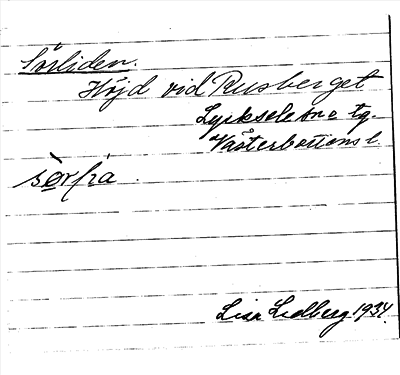 Sörliden.
Höjd vid Rusberget
Lycksele
Västerbottens l.
Lisa Lidberg 1934.